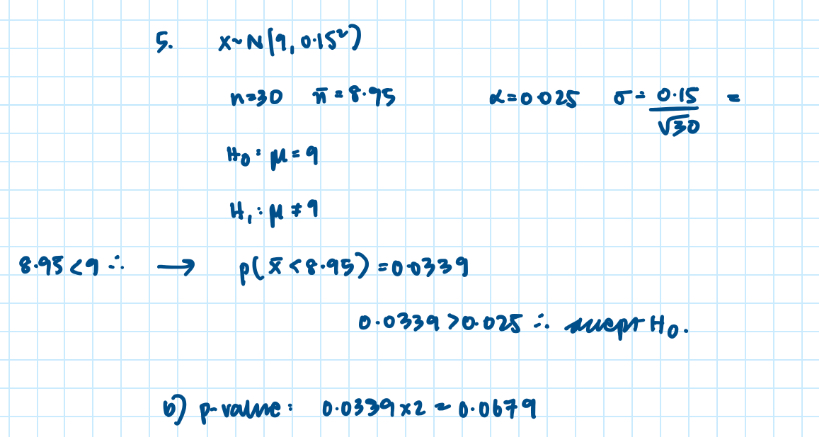 5. X~N(9, 0.15²)
n=30 x̄ = 8.95 α=0.025 σ = 0.15/√30 =
H₀: μ = 9
H₁: μ ≠ 9
8.95<9 ∴ → p(x̄<8.95)=0.0339
0.0339>0.025 ∴ accept H₀.
b) p-value: 0.0339×2 = 0.0679